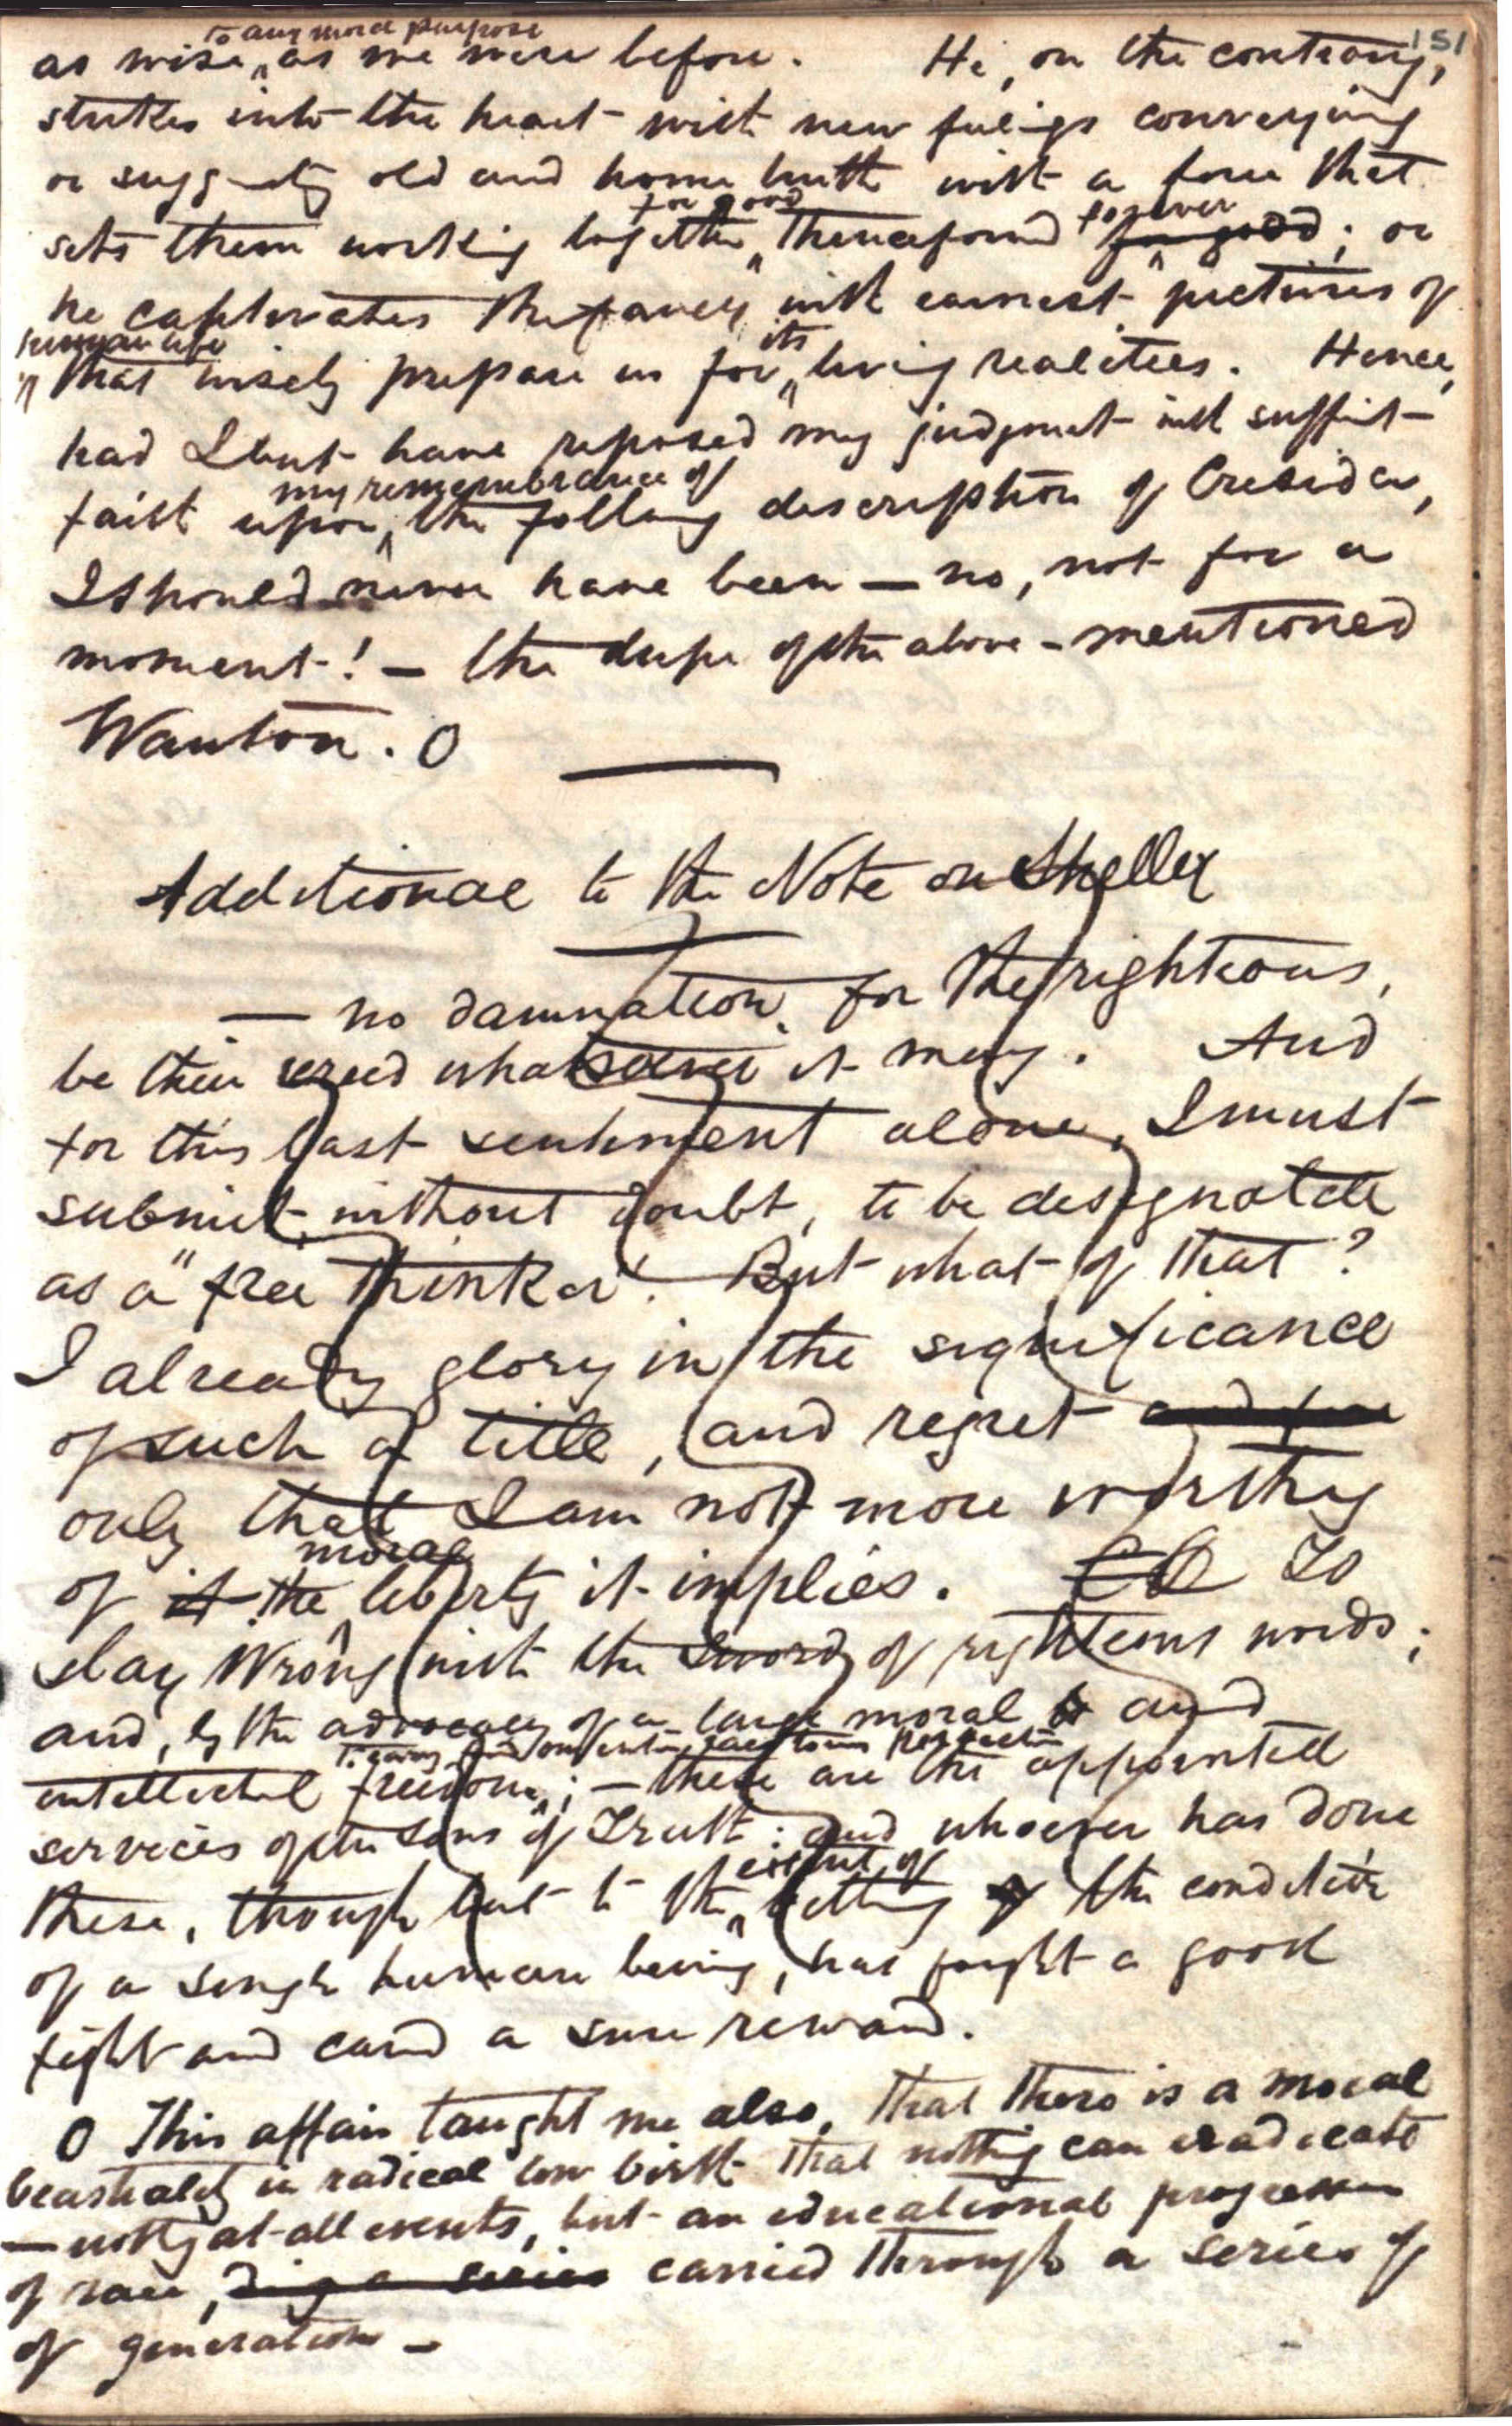 151
to any moral purpose
as wise as we were before. He, on the contrary,
strikes into the heart with new feelings conveying
or suggesting old and home truth with a force that
for good forever
sets them working together thenceforward for good; or
he captivates the fancy with earnest pictures of
human life its
that wisely prepare us for living realities. Hence,
had I but have reposed my judgment with sufficient
my remembrance of
faith upon the following description of Cresida,
I should never have been — no, not for a
moment! — the dupe of the above-mentioned
Wanton. O
Additional to the Note on Shelley
— no damnation for the righteous,
be their creed whatsoever it may. And
for this last sentiment alone, I must
submit, without doubt, to be designated
as a "free thinker". But what of that?
I already glory in the significance
of such a title, and regret
only that I am not more worthy
moral
of it the liberty it implies. To
slay Wrong with the sword of righteous words;
and, by the advocacy of a large moral and
intellectual freedom; — these are the appointed
services of the sons of Truth: and whoever has done
extent of
these, though but to the bettering of the condition
of a single human being, has fought a good
fight and earned a sure reward.
O This affair taught me also, that there is a moral
beastiality in radical low birth that nothing can eradicate
— nothing at all events, but an educational progression
of race, carried through a series of
of generations —